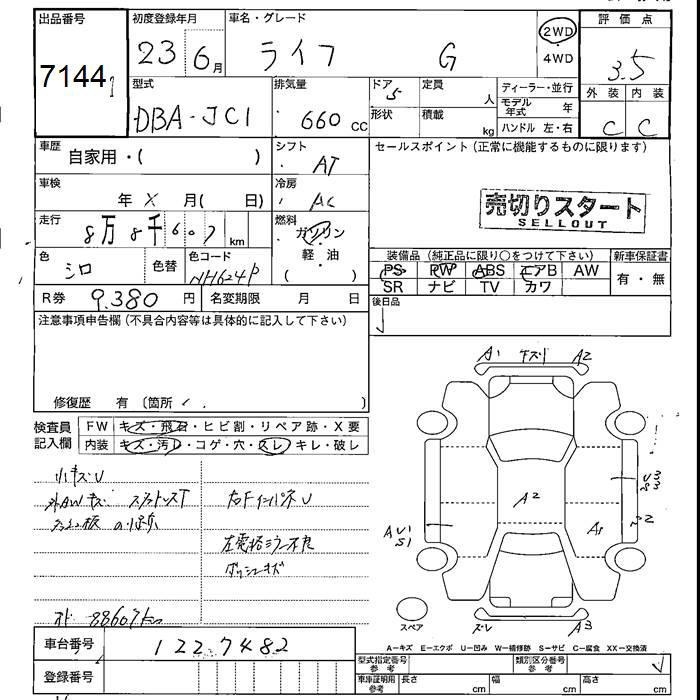 出品番号 初度登録年月 車名・グレード 評価点
7144 23 6月 ライフ G 2WD ・ 4WD 3.5
型式 排気量 ドア 5 定員 人 ディーラー・並行 外装 内装
DBA-JC1 660 CC 形状 積載 kg モデル年式 年 C C
ハンドル 左・右
車歴 自家用・( ) シフト AT セールスポイント (正常に機能するものに限ります)
車検 年 X 月( 日) 冷房 AC
売切りスタート
SELLOUT
走行 8万8千607 km 燃料 ガソリン
軽・油
( )
色 シロ 色替 色コード NH624P
装備品 (純正品に限り○をつけて下さい) 新車保証書
PS PW ABS エアB AW 有・無
SR ナビ TV カワ
R券 9.380 円 名変期限 月 日 後日品
注意事項申告欄 (不具合内容等は具体的に記入して下さい)
修復歴 有 (箇所
検査員記入欄 FW キズ・飛石・ヒビ割・リペア跡・X要
内装 キズ・汚レ・コゲ・穴・スレ・キレ・破レ
小キズU
右FインパネU
左電格ミラー不良
ダッシュキズ
88607km
A1 A2
A2
A1
AU1
S1
A3
スレ
スペア
A−キズ E−エクボ U−凹み W−補修跡 S−サビ C−腐食 XX−交換済
車台番号 1227482
型式指定番号 参考 類別区分番号 参考
登録番号
車庫証明用 参考 長さ cm 幅 cm 高さ cm